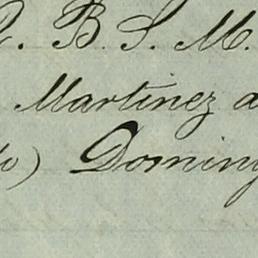 Q. B. S. M.
Martinez a
do) Doming